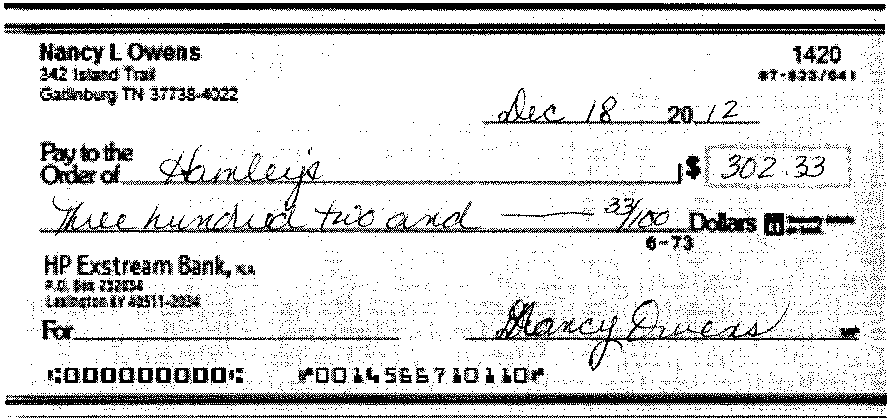 Nancy L Owens
1420
342 Island Trail
Gatlinburg TN 37738-4022
Dec 18 20 12
Pay to the
Order of Hamley's $ 302.33
Three hundred two and 33/100 Dollars
6-73
HP Exstream Bank, N.A.
P.O. Box 232034
Lexington KY 40511-2034
For Nancy Owens MP
⑆000000000⑆ ⑈0014566710110⑈